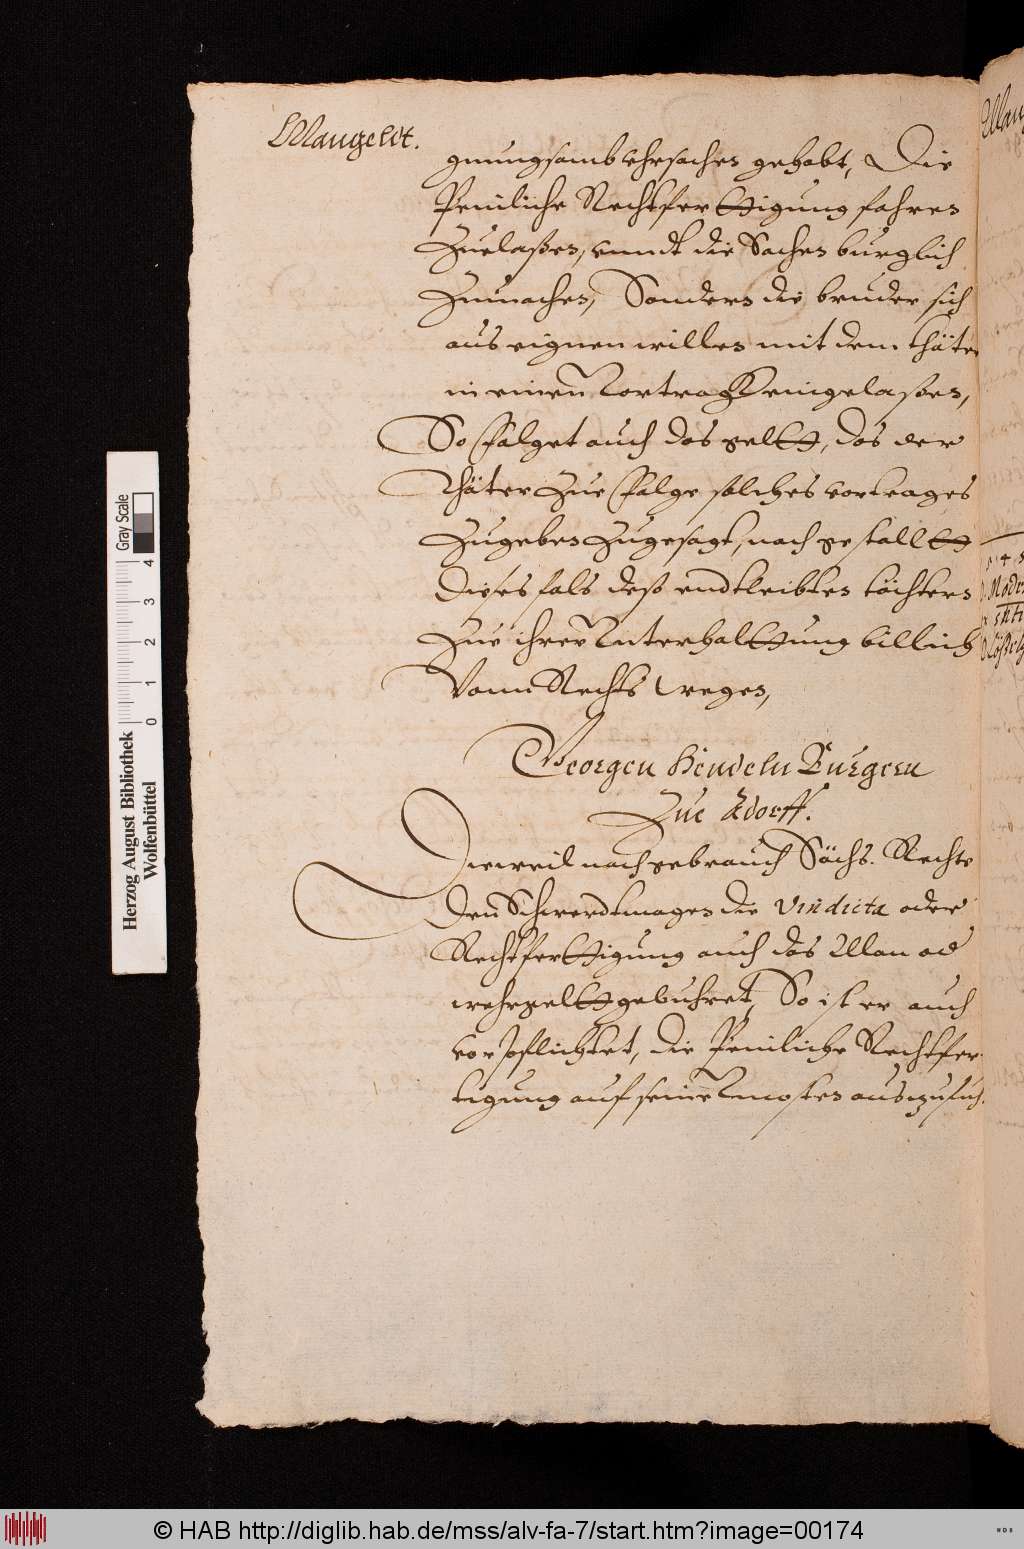 Mangeldt.
gnungsamb vhrsachen gehabt, Die
Peinliche Rechtfertigung fahren
Zuelaßen, vnndt die Sachen burglich
Zumachen, Sondern die bruder sich
aus eignen willen mit dem thäter
in einen Vortragk eingelaßen,
So folget auch das gelt, das der
Thäter Zue folge solches vortrages
Zugeben Zugesagt, nach gestalt
Dieses fals deß endtleibten töchtern
Zue ihrer Vnterhaltung billich
Vonn Rechts wegen,
Georgen Hendeln Burgern
Zue Adorff.
Dieweil nach gebrauch Sächs. Rechte
Den Schwerdtmagen die Vindicta oder
Rechtfertigung auch das Man od
wehrgelt gebuhret, So ist er auch
vorpflichtet, die Peinliche Rechtfer
tigung auf seine Vncosten auszufuh.
Herzog August Bibliothek
Wolfenbüttel
Gray Scale
0 1 2 3 4
© HAB http://diglib.hab.de/mss/alv-fa-7/start.htm?image=00174